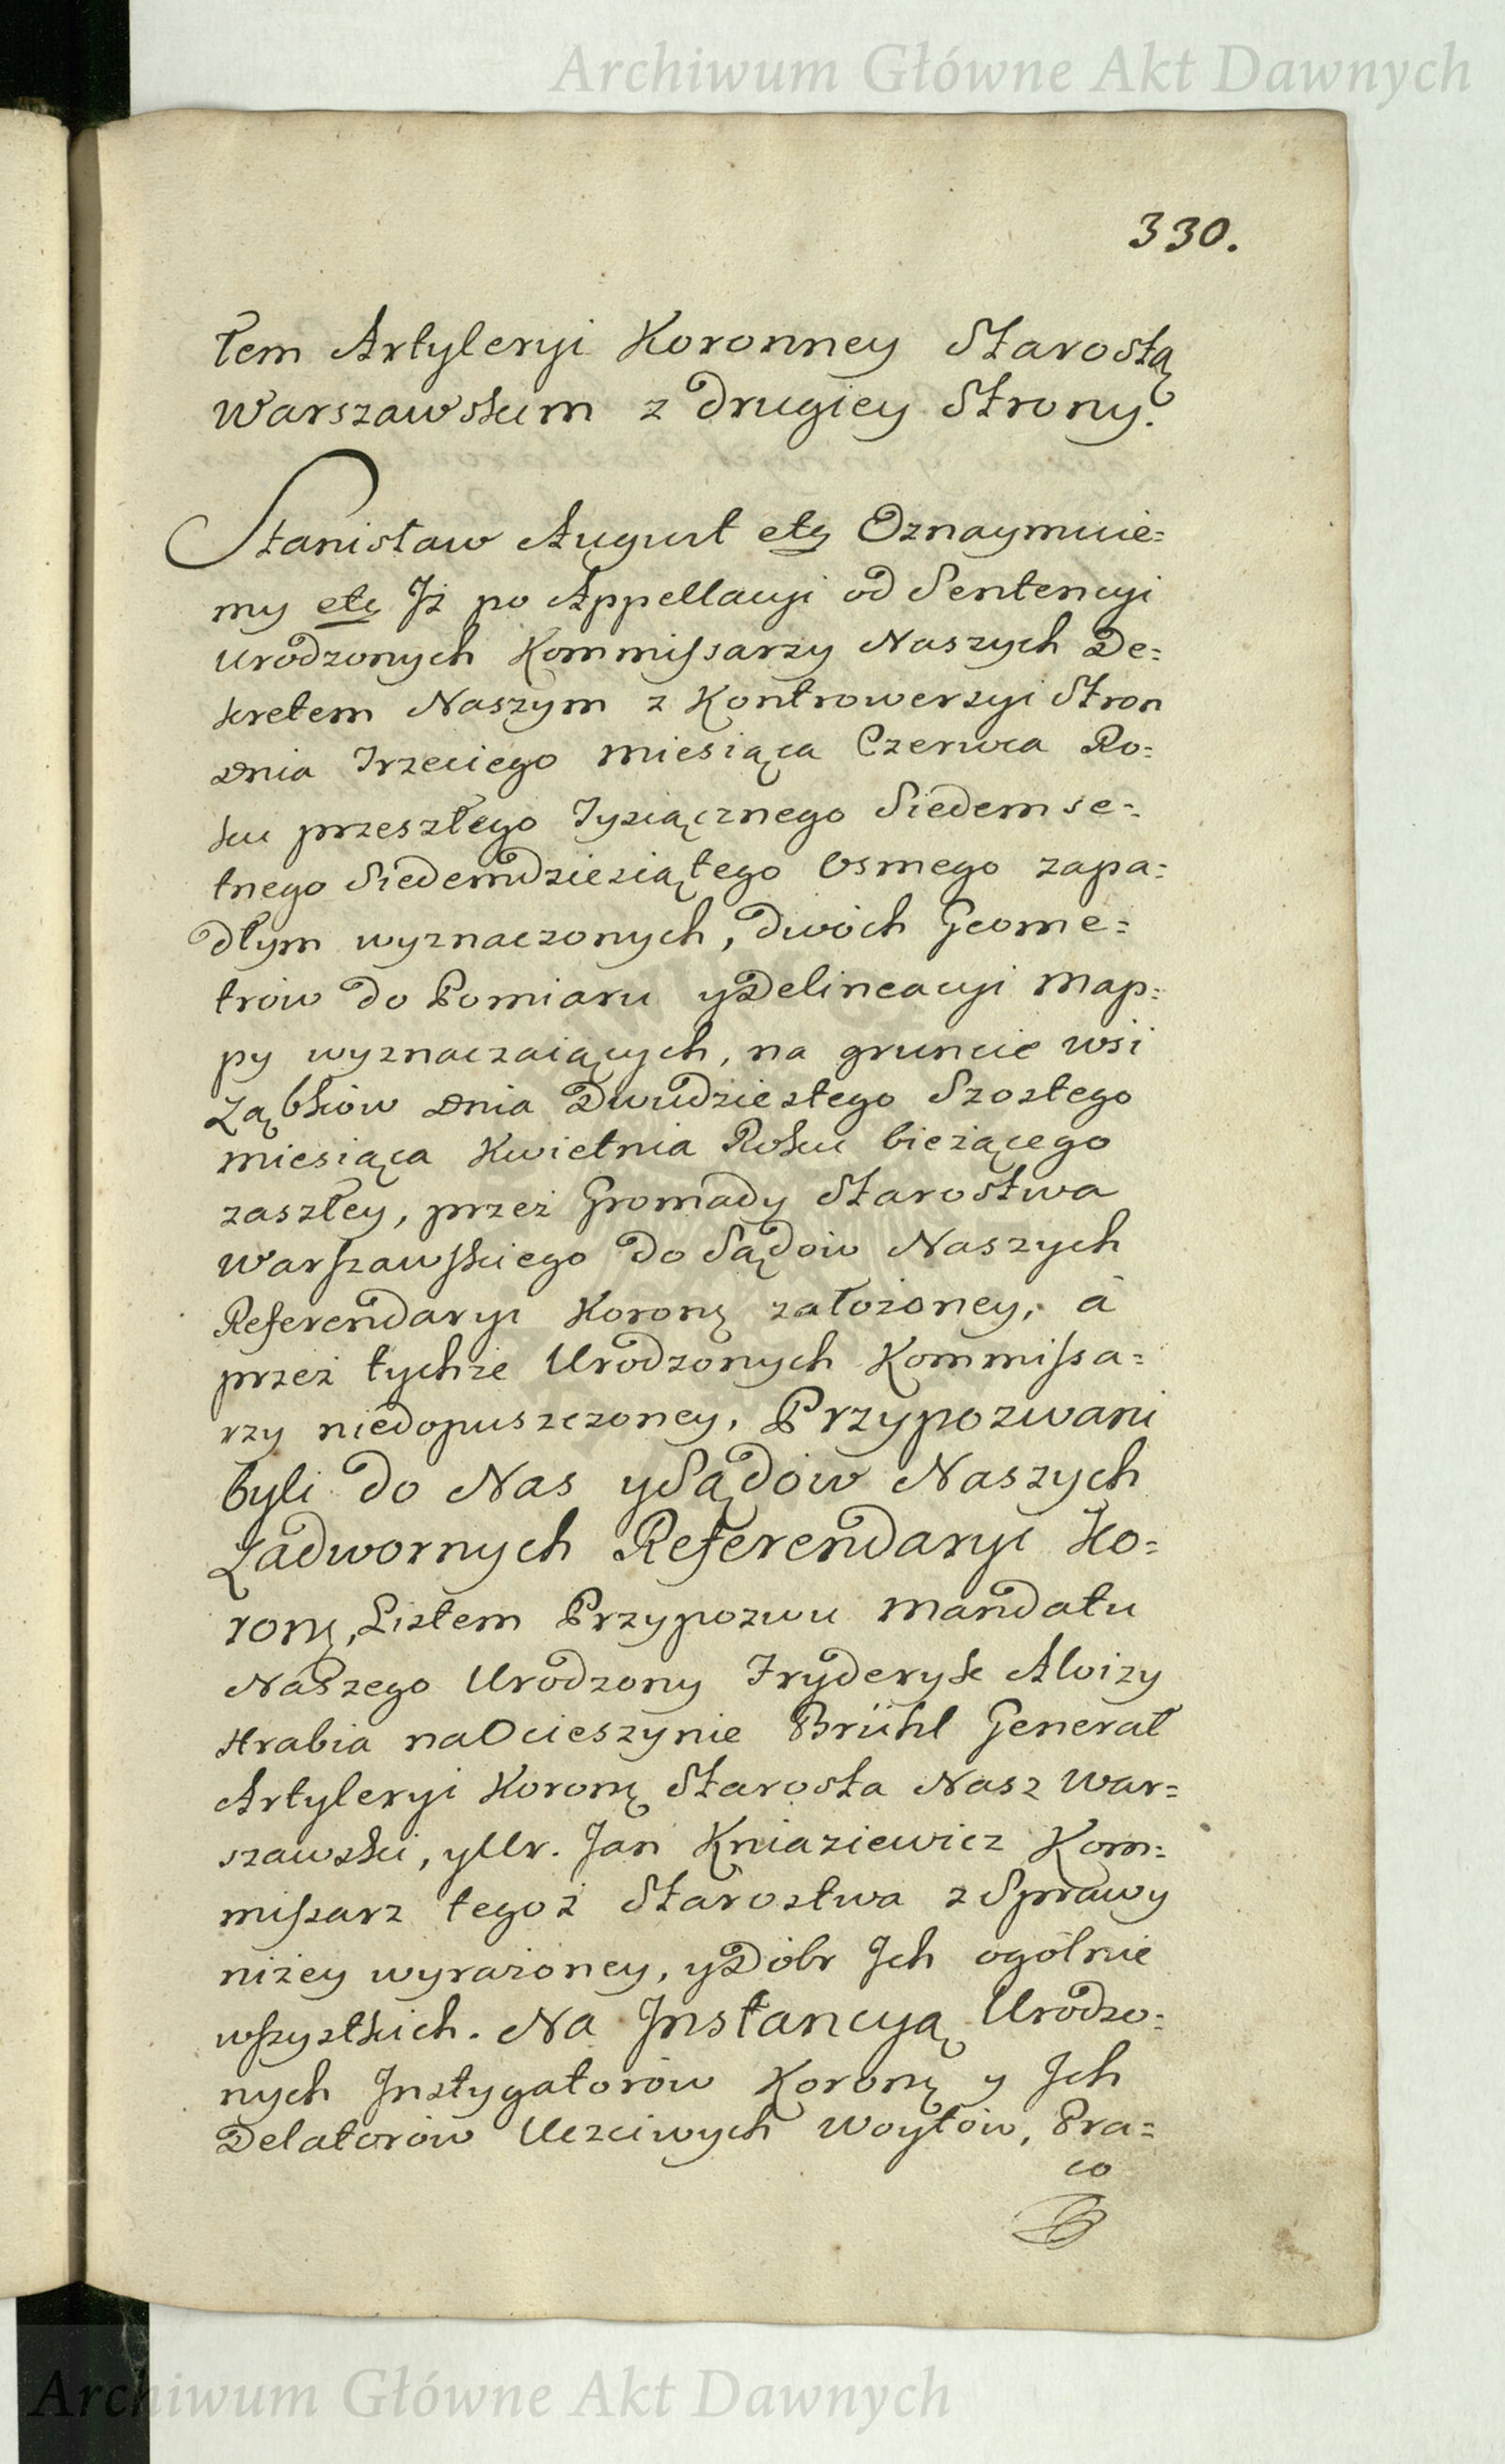 Archiwum Główne Akt Dawnych
330.
łem Artyleryi Koronney Starostą
Warszawskim z drugiey Strony.
Stanisław August etc Oznaymuie=
my etc Jż po Appellacyi od Sentencyi
Urodzonych Kommissarzy Naszych De=
kretem Naszym z Kontrowersyi Stron
dnia Trzeciego miesiąca Czerwca Ro=
ku przeszłego Tysiącznego Siedemse=
tnego Siedemdziesiątego Osmego zapa=
dłym wyznaczonych, dwóch Geome=
trów do Pomiaru y Delineacyi Map=
py wyznaczaiących, na gruncie wsi
Ząbków dnia Dwudziestego Szostego
miesiąca Kwietnia Roku bieżącego
zaszłey, przez Gromady Starostwa
Warszawskiego do Sądów Naszych
Referendaryi Koronę założoney, á
przez tychże Urodzonych Kommissa=
rzy niedopuszczoney, Przypozwani
byli do Nas y Sądów Naszych
Zadwornych Referendaryi Ko=
ronę, Listem Przypozwu Mandatu
Naszego Urodzony Fryderyk Aloizy
Hrabia na Ocieszynie Brühl Generał
Artyleryi Koronę Starosta Nasz War=
szawski, y Ur. Jan Kniaziewicz Kom=
missarz tegoż Starostwa z Sprawy
niżey wyrażoney, y Dóbr Jch ogólnie
wszystkich. Na Jnstancyą Urodzo=
nych Jnstygatorów Koronę y Jch
Delatorów Uczciwych Woytów, Pra=
co
Archiwum Główne Akt Dawnych